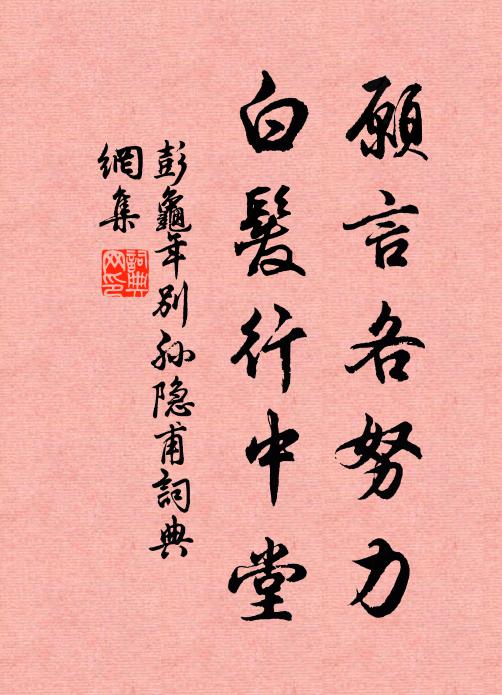 願言各努力
白髮行中堂
彭龜年別孙隐甫詞典
網集
詞典
网印